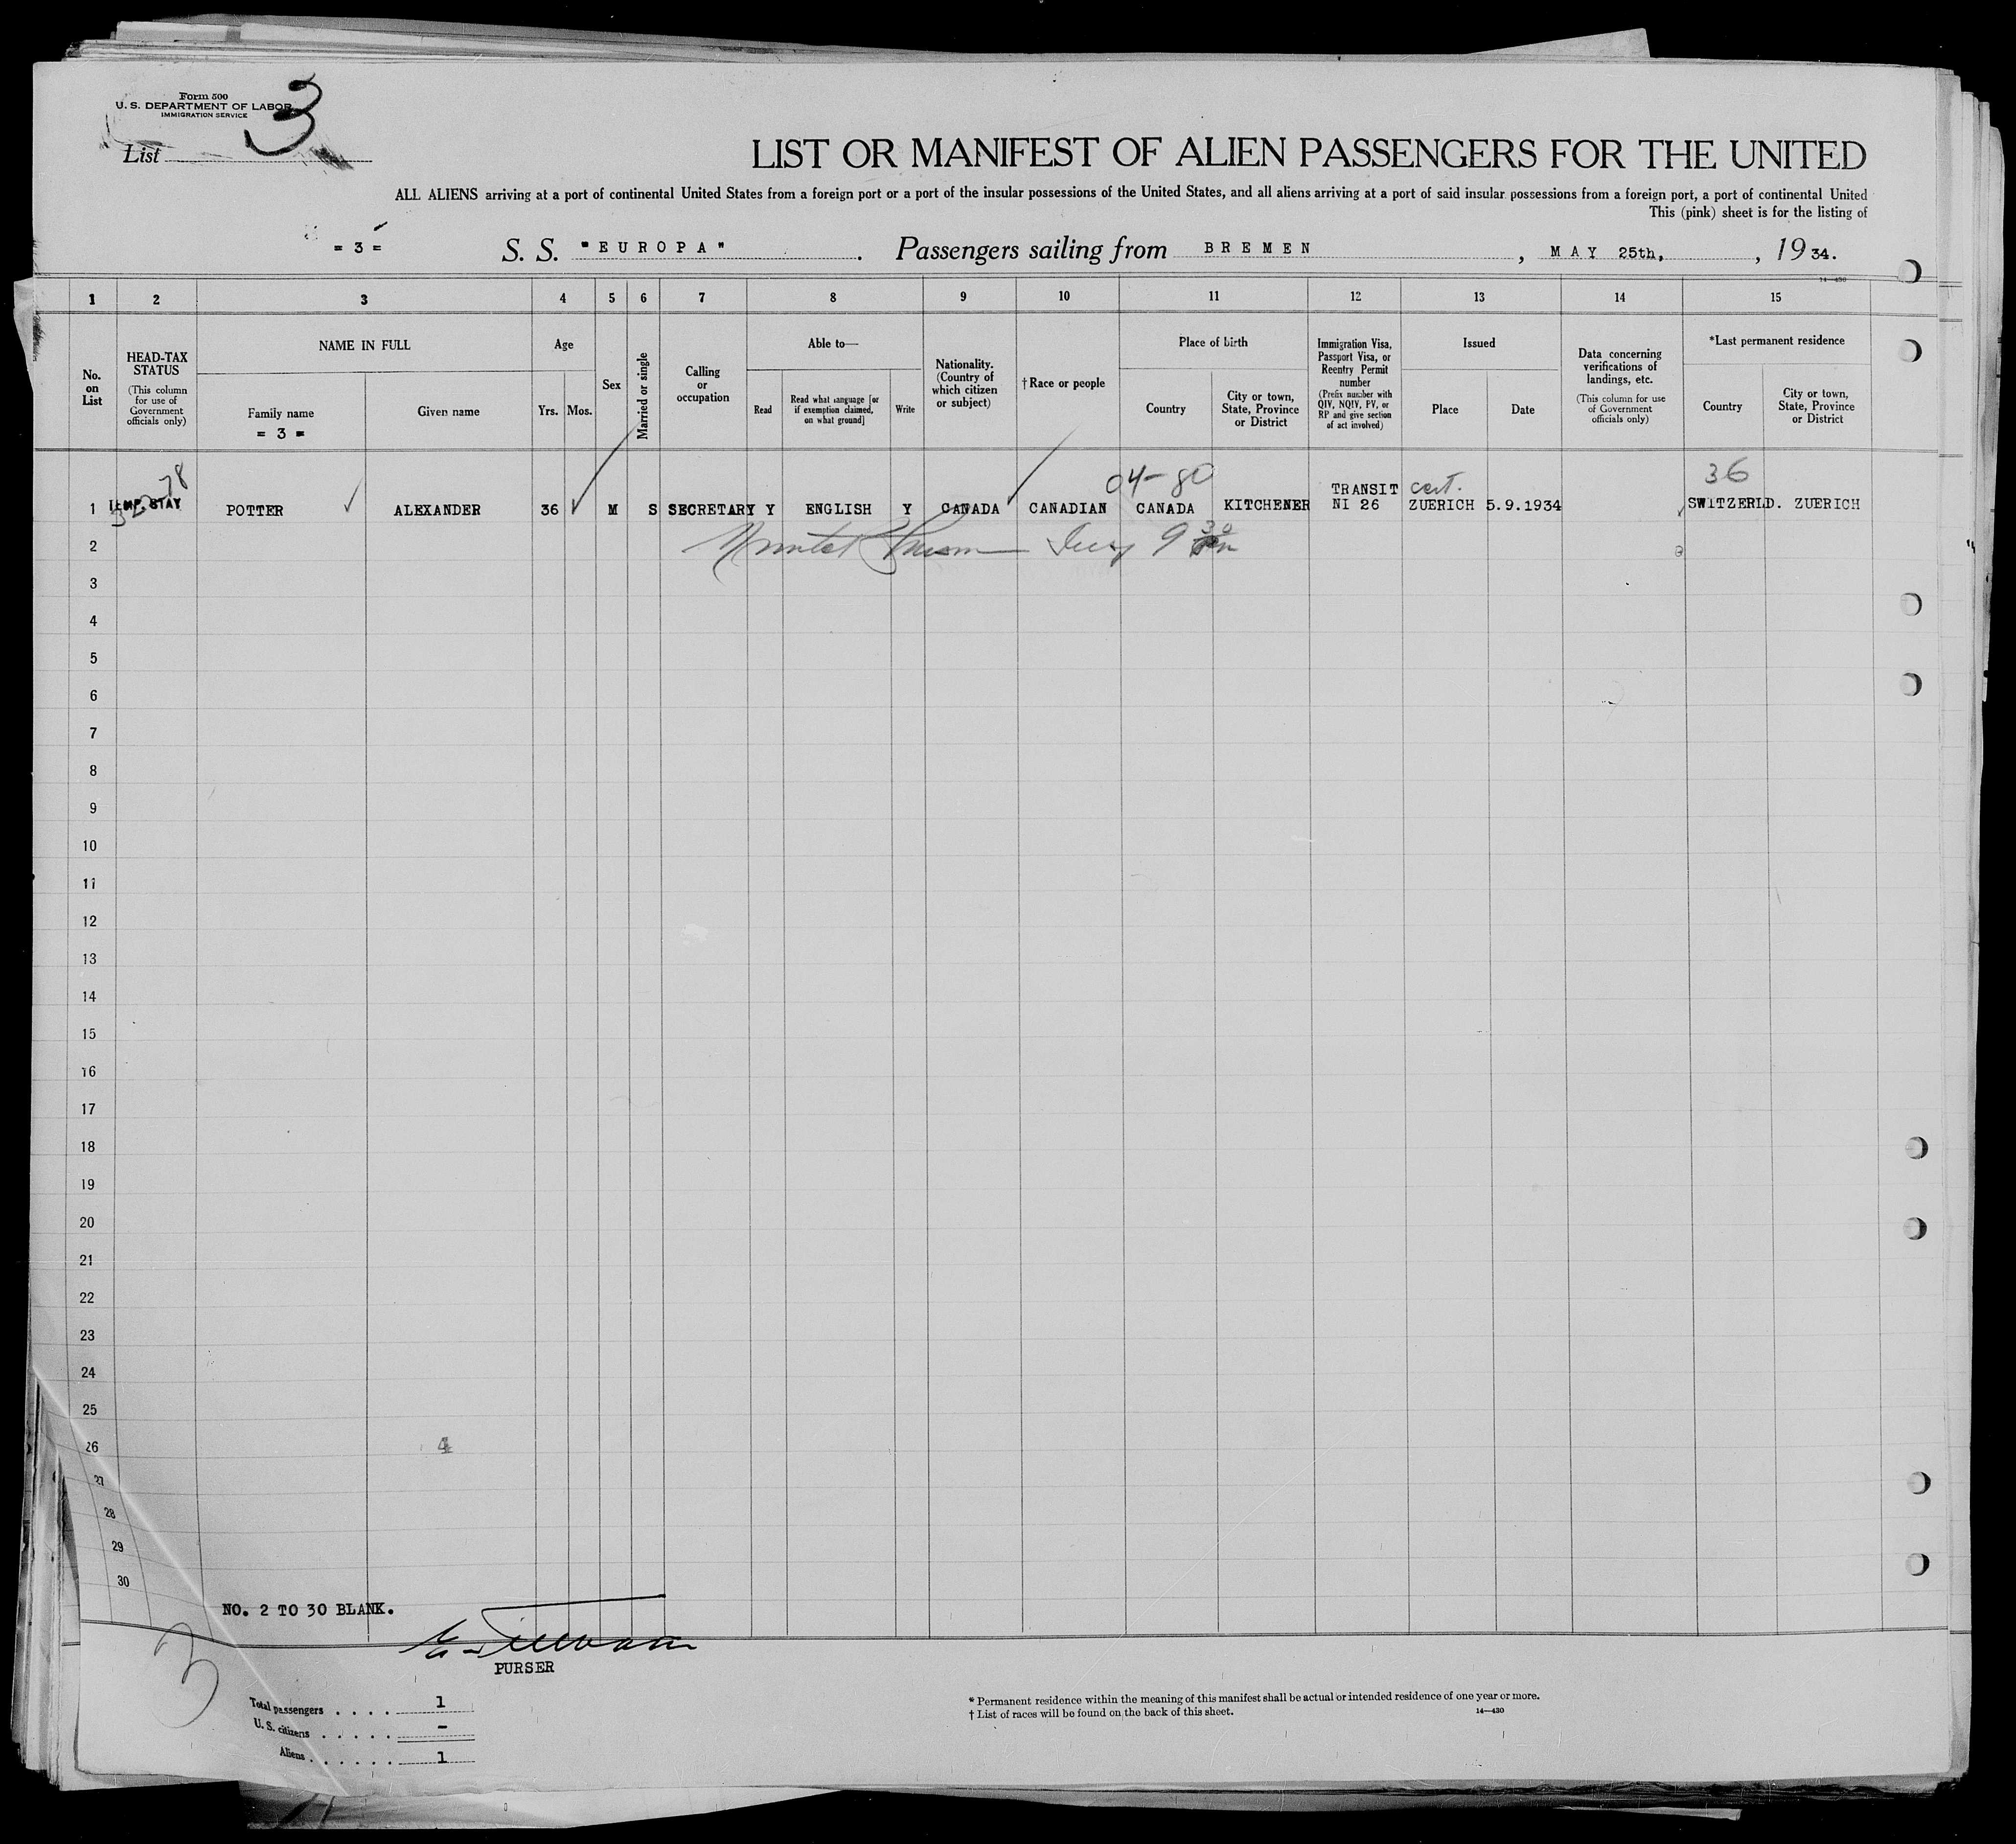 Form 500
U. S. DEPARTMENT OF LABOR
IMMIGRATION SERVICE
List 3
LIST OR MANIFEST OF ALIEN PASSENGERS FOR THE UNITED
ALL ALIENS arriving at a port of continental United States from a foreign port or a port of the insular possessions of the United States, and all aliens arriving at a port of said insular possessions from a foreign port, a port of continental United
This (pink) sheet is for the listing of
= 3 = S. S. "EUROPA". Passengers sailing from BREMEN, MAY 25th, , 19 34.
14—430
1 2 3 4 5 6 7 8 9 10 11 12 13 14 15
No. on List
HEAD-TAX STATUS
(This column for use of Government officials only)
NAME IN FULL
Family name
= 3 =
Given name
Age
Yrs. Mos.
Sex
Married or single
Calling or occupation
Able to—
Read
Read what language [or if exemption claimed, on what ground]
Write
Nationality. (Country of which citizen or subject)
† Race or people
Place of birth
Country
City or town, State, Province or District
Immigration Visa, Passport Visa, or Reentry Permit number
(Prefix number with QIV, NQIV, PV, or RP and give section of act involved)
Issued
Place
Date
Data concerning verifications of landings, etc.
(This column for use of Government officials only)
*Last permanent residence
Country
City or town, State, Province or District
04-80
36
TRANSIT cert.
1 STAY POTTER ALEXANDER 36 M S SECRETARY Y ENGLISH Y CANADA CANADIAN CANADA KITCHENER NI 26 ZUERICH 5.9.1934 SWITZERLD. ZUERICH
2
3
4
5
6
7
8
9
10
11
12
13
14
15
16
17
18
19
20
21
22
23
24
25
26 4
27
28
29
30
NO. 2 TO 30 BLANK.
PURSER
3
Total passengers . . . . 1
U. S. citizens . . . . . –
Aliens . . . . . . 1
* Permanent residence within the meaning of this manifest shall be actual or intended residence of one year or more.
† List of races will be found on the back of this sheet.
14—430